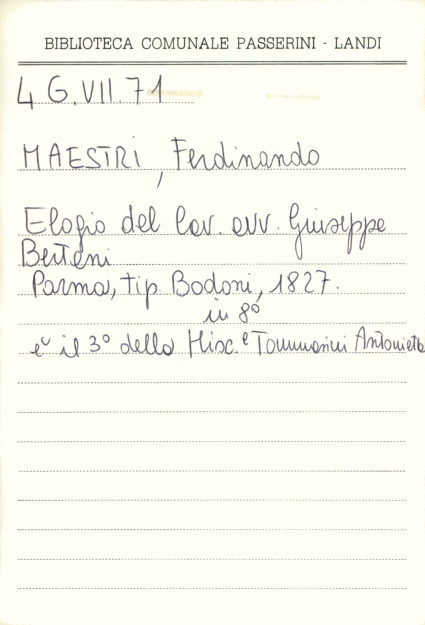 BIBLIOTECA COMUNALE PASSERINI - LANDI
4 G.VII.71
MAESTRI, Ferdinando
Elogio del Cav. avv. Giuseppe
Bertani
Parma, tip. Bodoni, 1827.
in 8º
è il 3º della Misc.ᵉ Tommasini Antonietta